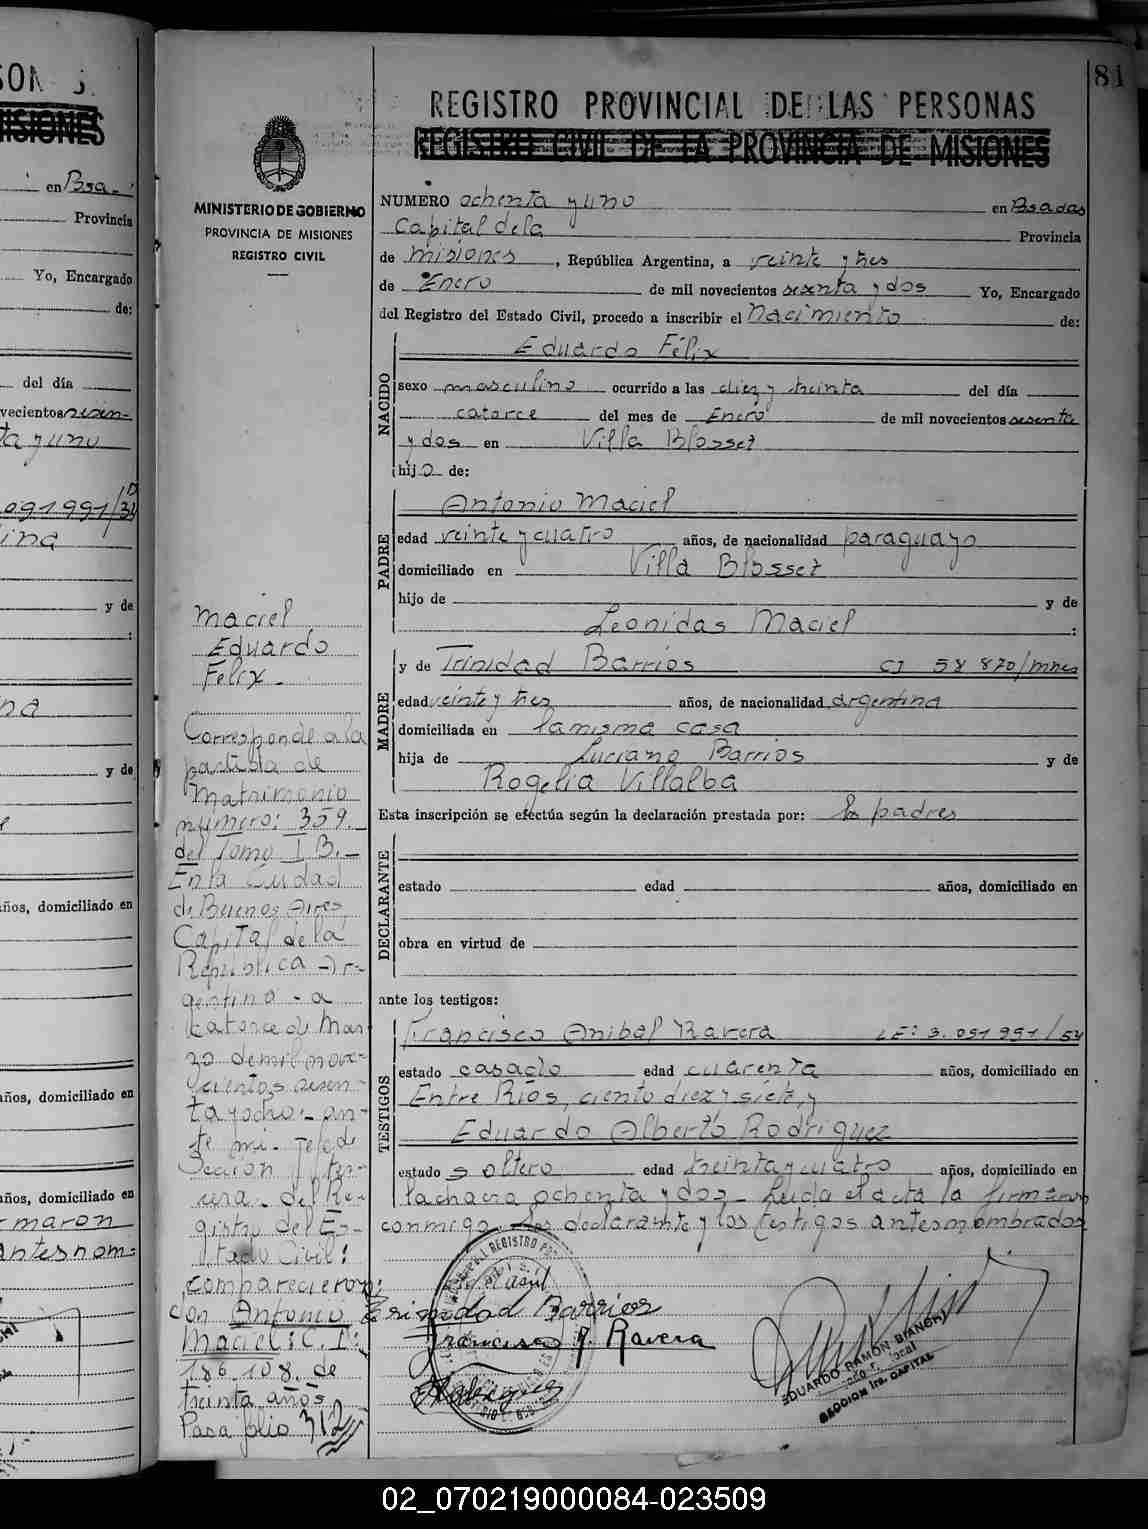 SON S.
MISIONES
en Bsa-
Provincia
Yo, Encargado
de:
del día
novecientos sesen-
ta y uno
091991/34
ina
y de
na
y de
años, domiciliado en
años, domiciliado en
años, domiciliado en
rmaron
antesnom-
81
MINISTERIO DE GOBIERNO
PROVINCIA DE MISIONES
REGISTRO CIVIL
Maciel
Eduardo
Felix.-
Corresponde a la
partida de
Matrimonio
número: 359.-
del Tomo I B.-
En la Ciudad
de Buenos Aires,
Capital de la
República Ar-
gentina - a
catorce de Mar-
zo de mil nove-
cientos sesen-
ta y ocho.- an-
te mi- Jefe de
Sección
cera- del Re-
gistro del Es-
tado Civil:
comparecieron;
con Antonio
Maciel: C.I:
186.108. de
treinta años
Pasa folio 312
REGISTRO PROVINCIAL DE LAS PERSONAS
REGISTRO CIVIL DE LA PROVINCIA DE MISIONES
NUMERO ochenta y uno en Psadas
Capital dela Provincia
de Misiones, República Argentina, a veinte y tres
de Enero de mil novecientos sesenta y dos Yo, Encargado
del Registro del Estado Civil, procedo a inscribir el Nacimiento de:
NACIDO
Eduardo Félix
sexo masculino ocurrido a las diez y treinta del día
catorce del mes de Enero de mil novecientos sesenta
y dos en Villa Blosset
hijo de:
PADRE
Antonio Maciel
edad veinte y cuatro años, de nacionalidad paraguayo
domiciliado en Villa Blosset
hijo de y de
Leonidas Maciel :
MADRE
y de Trinidad Barrios CI 58 870/mnes
edad veinte y tres años, de nacionalidad argentina
domiciliada en la misma casa
hija de Luciano Barrios y de
Rogelia Villalba
Esta inscripción se efectúa según la declaración prestada por: los padres
DECLARANTE
estado edad años, domiciliado en
obra en virtud de
ante los testigos:
TESTIGOS
Francisco Anibal Ravera LE: 3.091991/34
estado casado edad cuarenta años, domiciliado en
Entre Ríos, ciento diez y siete, y
Eduardo Alberto Rodriguez
estado soltero edad treinta y cuatro años, domiciliado en
la chacra ochenta y dos- Leida el acta la firmaron
conmigo, los declarante y los testigos antesnombrados
Trinidad Barrios
Francisco A. Ravera
Rodriguez
EDUARDO RAMON BIANCHI
SECCION 1ra. CAPITAL
02_070219000084-023509